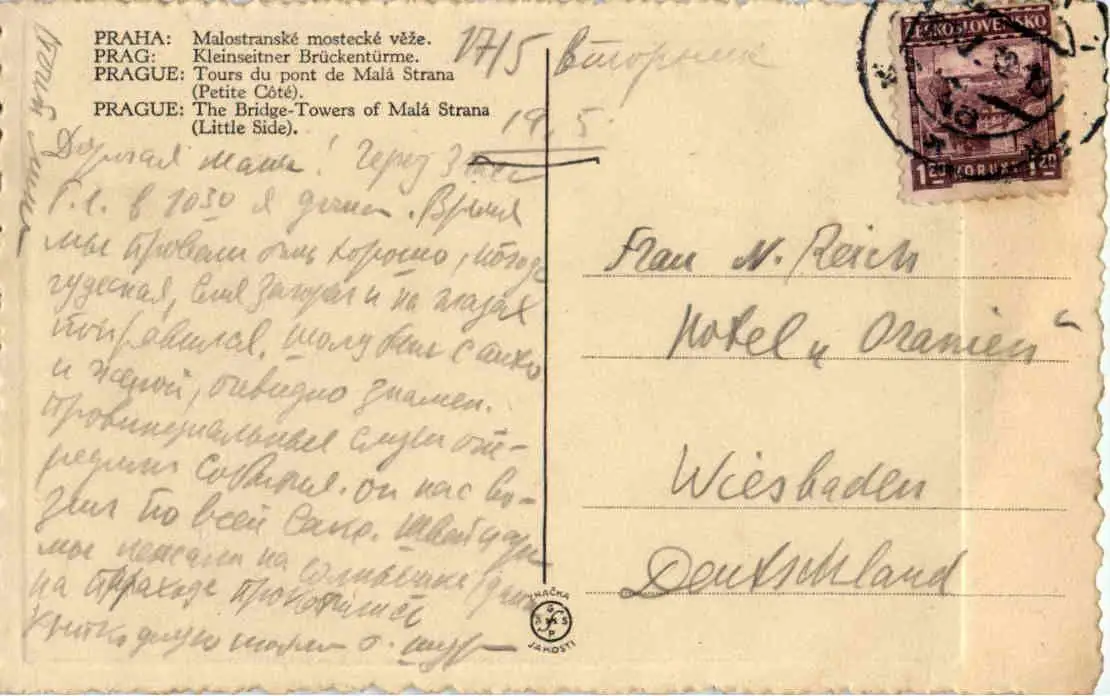 PRAHA: Malostranské mostecké věže.
PRAG: Kleinseitner Brückentürme.
PRAGUE: Tours du pont de Malá Strana
(Petite Côté).
PRAGUE: The Bridge-Towers of Malá Strana
(Little Side).
17/5 Вторник
19.5.
Дорогая мама! Через 3
в 1030 я дома. Время
мы провели очень хорошо, погода
чудесная, загорел и на глазах
поправился.
и женой, очевидно знамен.
провинциальные слухи опе-
редили события. он нас во-
зил по всей Сакс. Швейцарии
мы лежали на солнышке
на пароходе прокатились
ČESKOSLOVENSKO
1 20 KORUNA 1 20
Frau N. Reich
Hotel „Oranien“
Wiesbaden
Deutschland
ZNAČKA
JAKOSTI